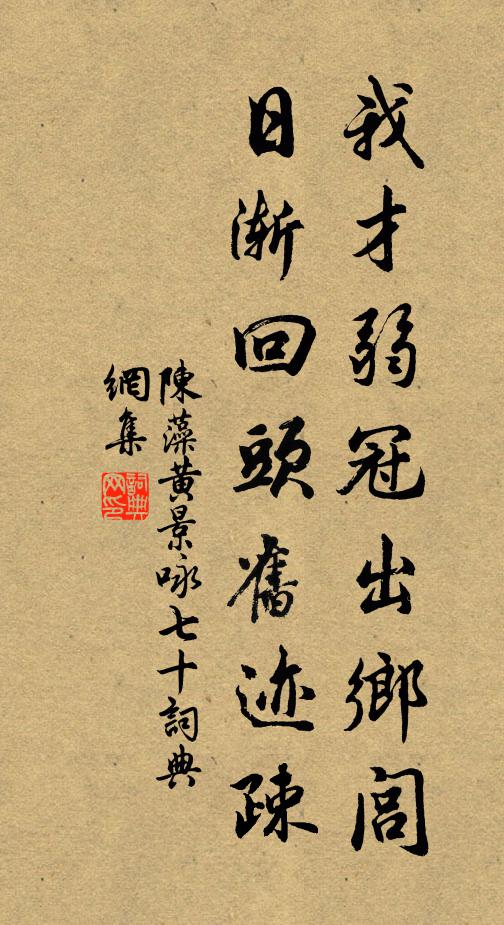 我才弱冠出鄉閭
日漸回頭舊迹疎
陳藻黃景咏七十詞典
網集
詞典
网印